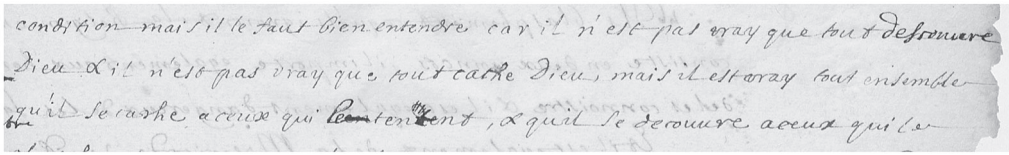 condition mais il le faut bien entendre car il n'est pas vray que tout descouure
Dieu & il n'est pas vray que tout cache Dieu, mais il est vray tout ensemble
qu'il se cache a ceux qui le tentent, & quil se decouure a ceux qui le